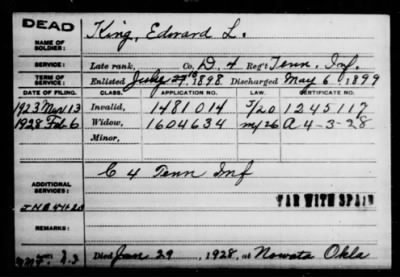 DEAD
NAME OF SOLDIER: King, Edward L.
SERVICE: Late rank, Co. D. 4 Reg't Tenn. Inf.
TERM OF SERVICE: Enlisted July 1898 Discharged May 6, 1899
DATE OF FILING. CLASS. APPLICATION NO. LAW. CERTIFICATE NO.
1923 Nov 13 Invalid, 1481014 5/20 1245117
1928 Feb 6 Widow, 1604634 A 4-3-28
Minor,
C 4 Tenn Inf
ADDITIONAL SERVICES:
WAR WITH SPAIN
REMARKS:
Died Jan 29, 1928, at Nowata Okla